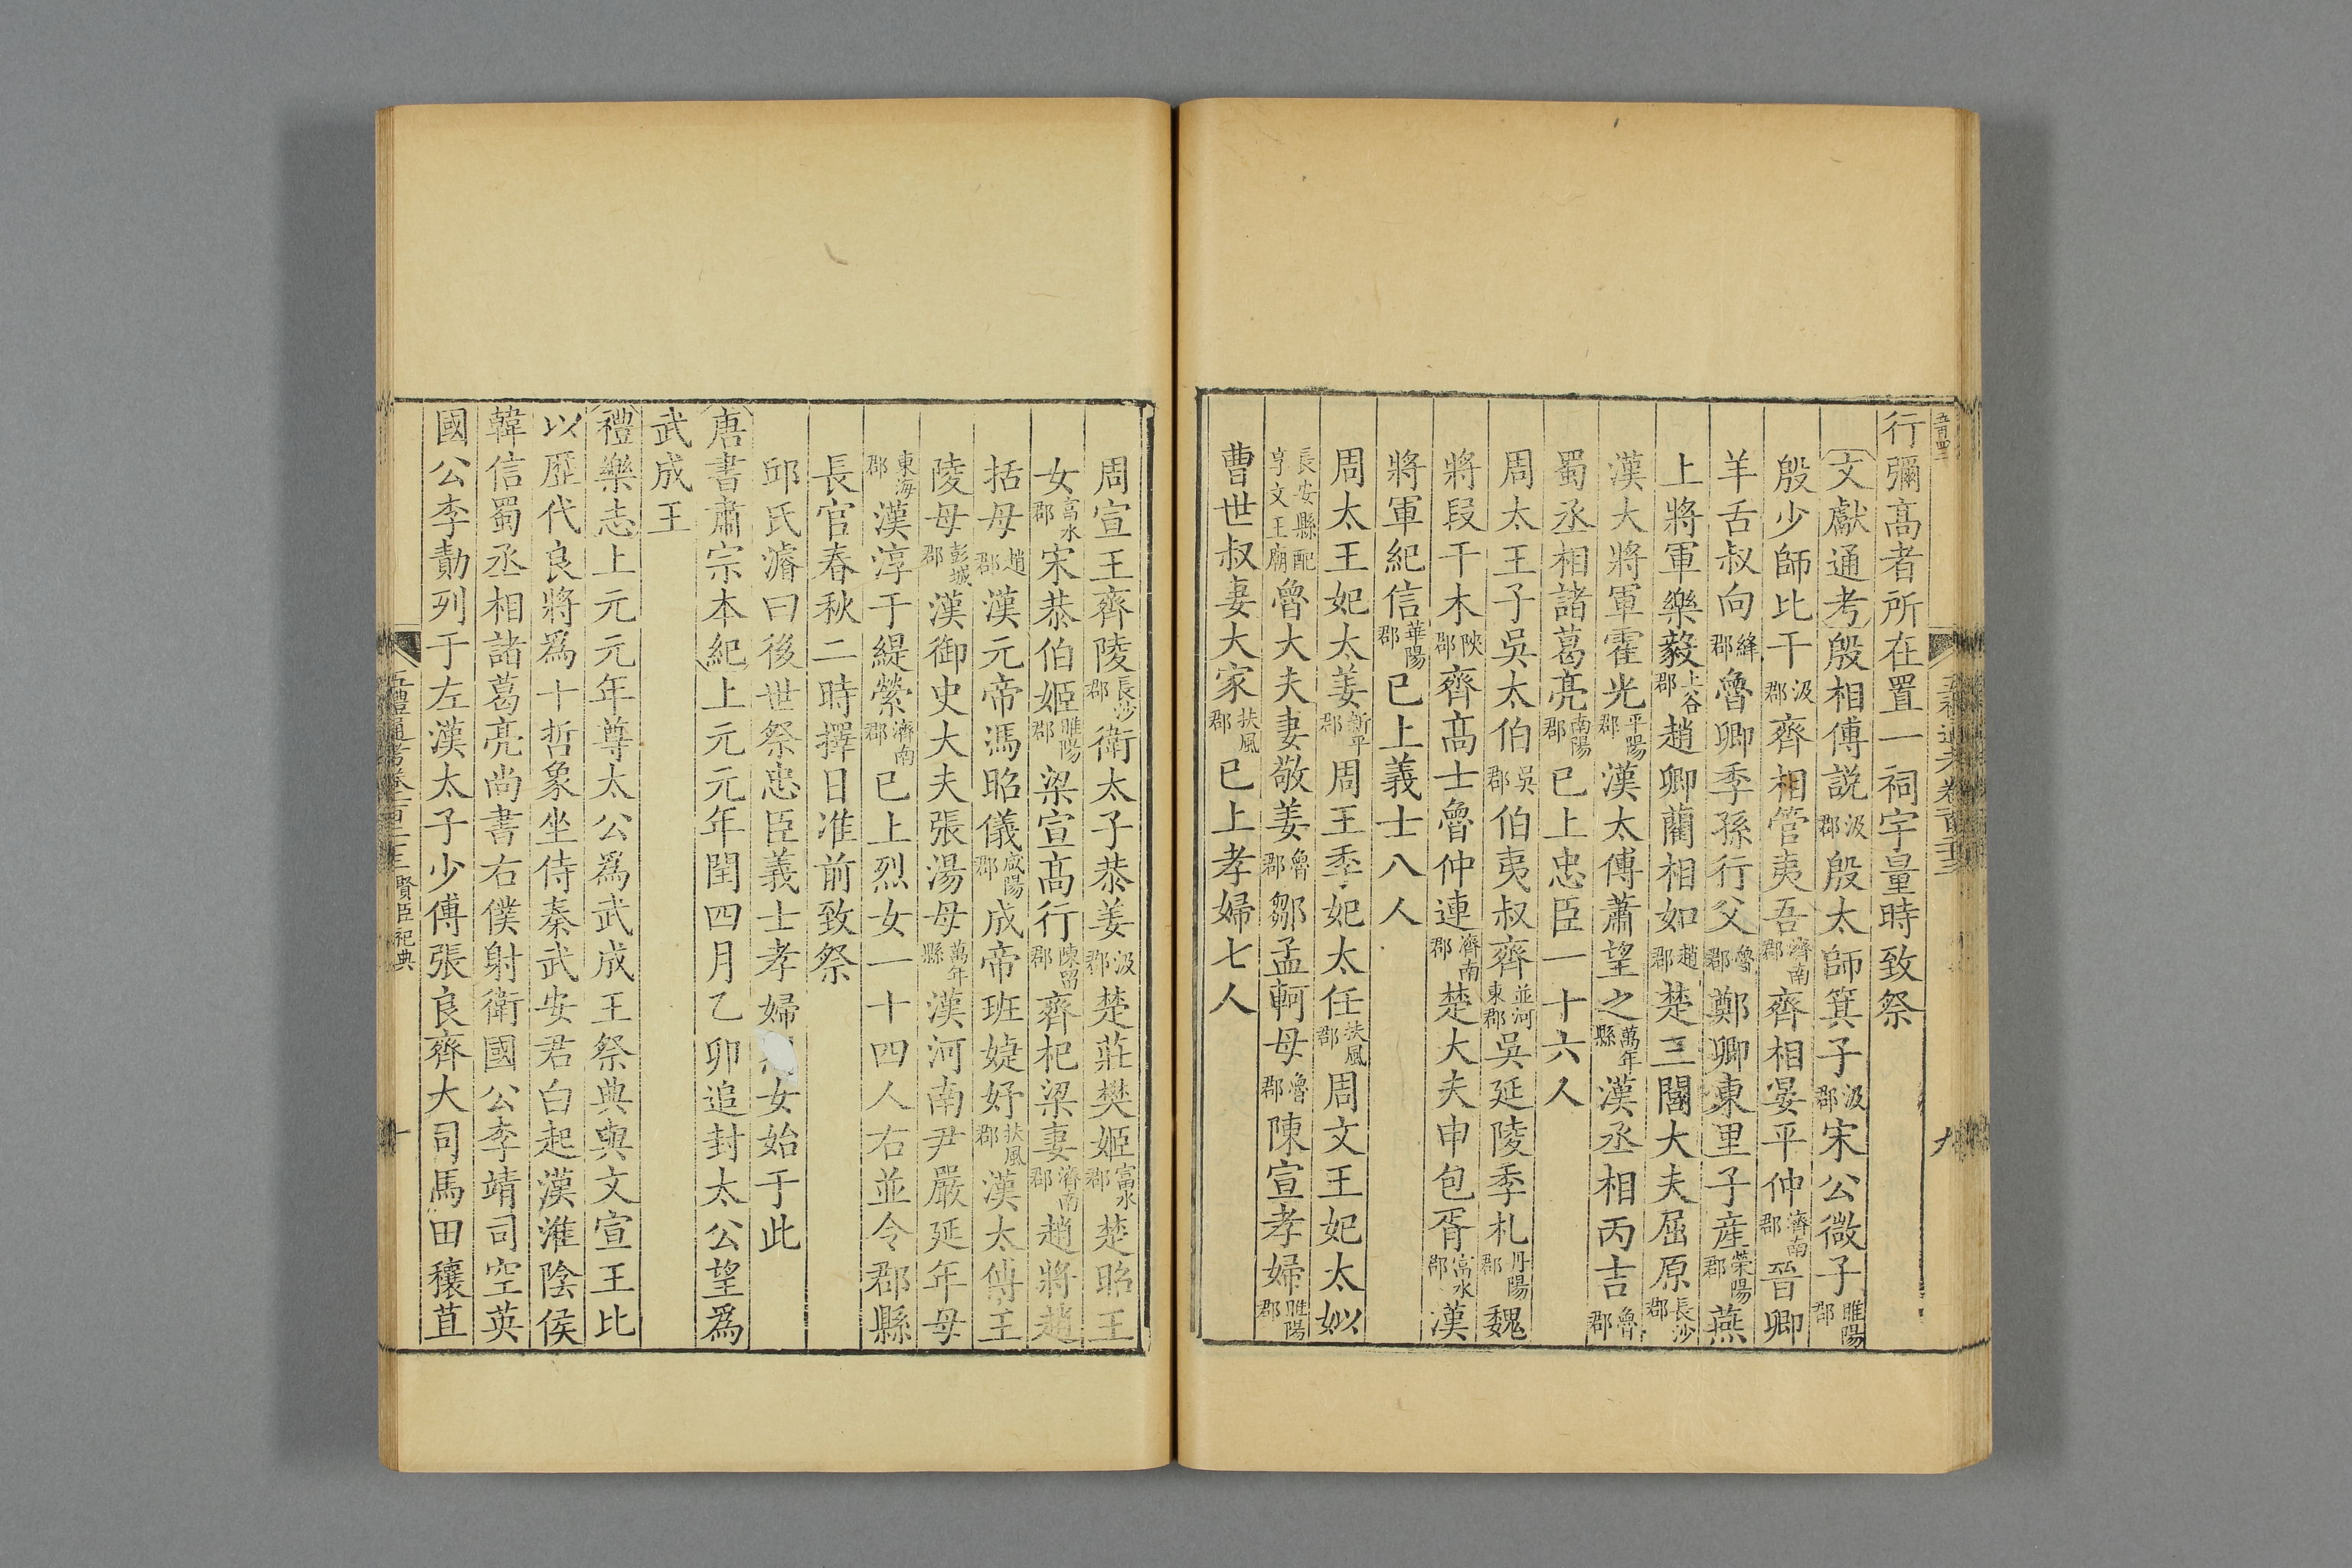 五百四二
行彌高者所在置一祠宇量時致祭
文獻通考殷相傅説汲郡殷太師箕子汲郡宋公微子睢陽郡
殷少師比干汲郡齊相管夷吾濟南郡齊相晏平仲濟南郡晉卿
羊舌叔向絳郡魯卿季孫行父魯郡鄭卿東里子産滎陽郡燕
上將軍樂毅上谷郡趙卿藺相如趙郡楚三閭大夫屈原長沙郡
漢大將軍霍光平陽郡漢太傅蕭望之萬年縣漢丞相丙吉魯郡
蜀丞相諸葛亮南陽郡已上忠臣一十六人
周太王子吳太伯吳郡伯夷叔齊並河東郡吳延陵季札丹陽郡魏
將段干木陝郡齊高士魯仲連濟南郡楚大夫申包胥富水郡漢
將軍紀信華陽郡已上義士八人
周太王妃太姜新平郡周王季妃太任扶風郡周文王妃太姒
長安縣配享文王廟魯大夫妻敬姜魯郡鄒孟軻母魯郡陳宣孝婦睢陽郡
曹世叔妻大家扶風郡已上孝婦七人
九
周宣王齊陵長沙郡衛太子恭姜汲郡楚莊樊姬富水郡楚昭王
女富水郡宋恭伯姬睢陽郡梁宣高行陳留郡齊杞梁妻濟南郡趙將趙
括母趙郡漢元帝馮昭儀咸陽郡成帝班婕妤扶風郡漢太傅王
陵母彭城郡漢御史大夫張湯母萬年縣漢河南尹嚴延年母
東海郡漢淳于緹縈濟南郡已上烈女一十四人右並令郡縣
長官春秋二時擇日准前致祭
邱氏濬曰後世祭忠臣義士孝婦女始于此
唐書肅宗本紀上元元年閏四月乙卯追封太公望爲
武成王
禮樂志上元元年尊太公爲武成王祭典與文宣王比
以歷代良將爲十哲象坐侍秦武安君白起漢淮陰侯
韓信蜀丞相諸葛亮尚書右僕射衛國公李靖司空英
國公李勣列于左漢太子少傅張良齊大司馬田穰苴
五禮通考卷一百二十三賢臣祀典
十